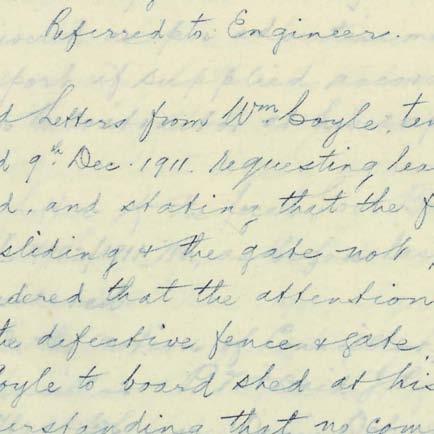 Referred to Engineer.
d Letters from Wm Coyle, ten
d 9th Dec. 1911. requesting lea
d, and stating that the f
sliding & the gate not
dered that the attention
he defective fence & gate,
oyle to board shed at his
erstanding that no com